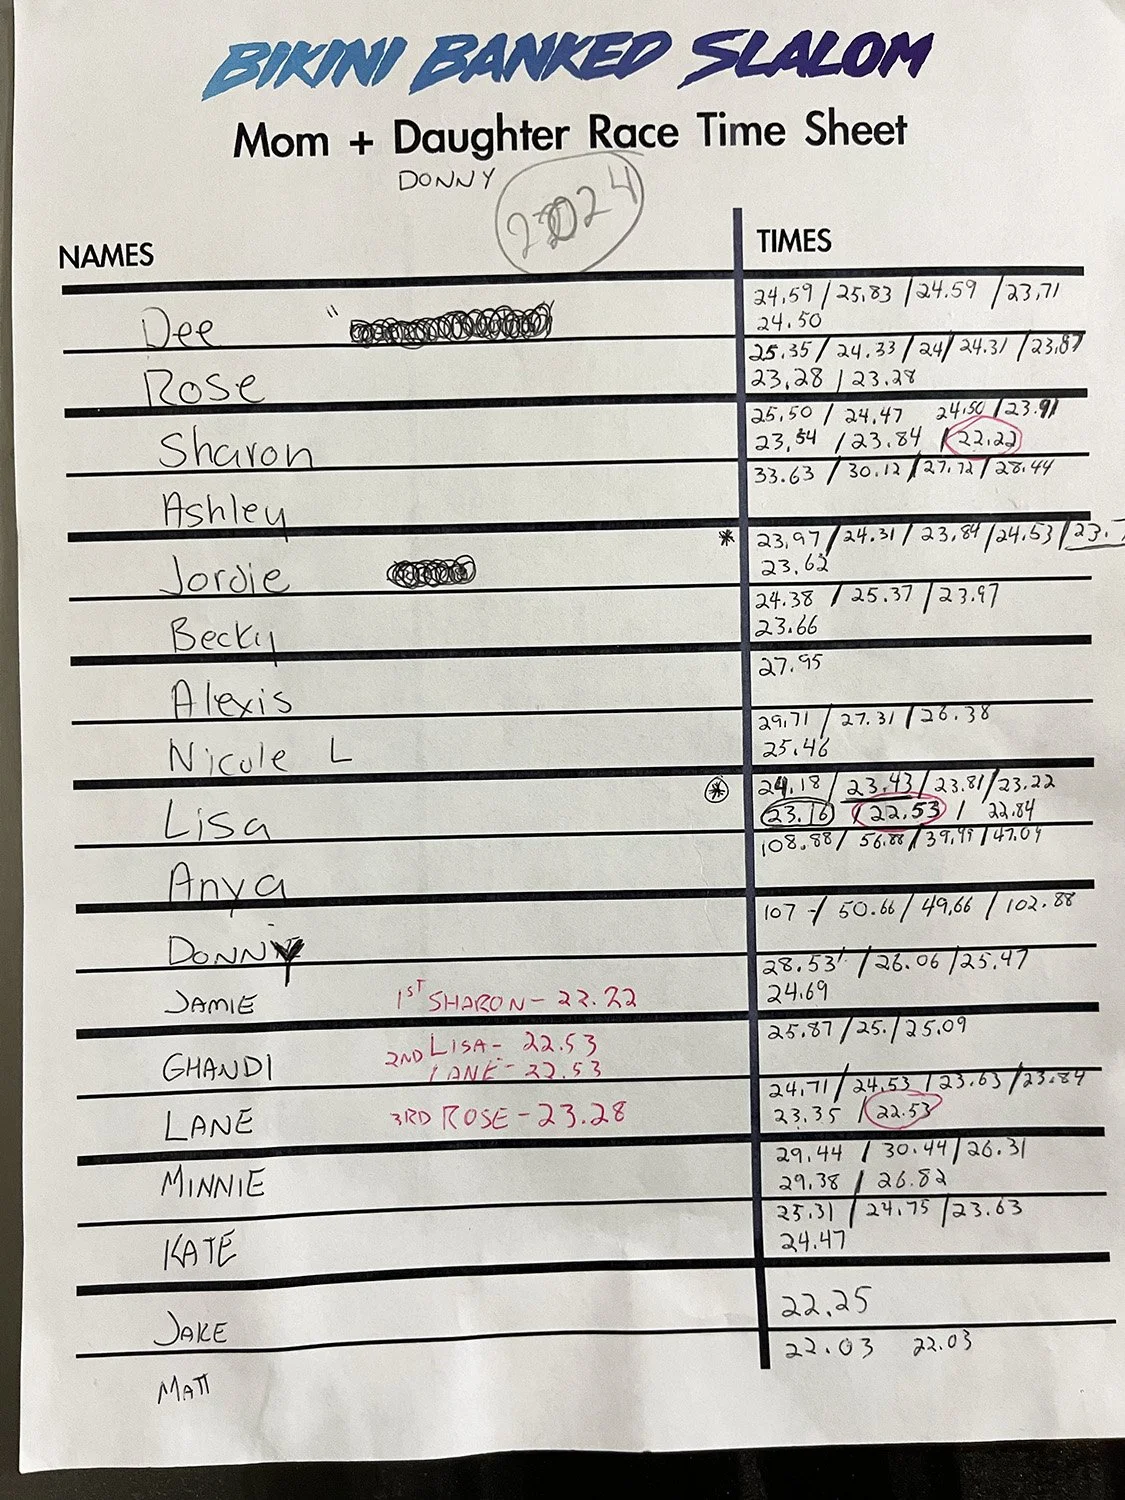 BIKINI BANKED SLALOM
Mom + Daughter Race Time Sheet
DONNY
2024
NAMES
TIMES
24.59 / 25.83 / 24.59 / 23.71
Dee
24.50
25.35 / 24.33 / 24 / 24.31 / 23.87
Rose
23.28 / 23.28
25.50 / 24.47 24.50 / 23.91
Sharon
23.54 / 23.84 / 22.22
33.63 / 30.12 / 27.72 / 28.44
Ashley
* 23.97 / 24.31 / 23.84 / 24.53 / 23.7
Jordie
23.62
24.38 / 25.37 / 23.97
Becky
23.66
27.95
Alexis
29.71 / 27.31 / 26.38
Nicole L
25.46
* 24.18 / 23.43 / 23.81 / 23.22
Lisa
23.16 / 22.53 / 22.84
108.88 / 56.88 / 39.99 / 47.09
Anya
107 - / 50.66 / 49.66 / 102.88
DONNY
28.53 / 26.06 / 25.47
JAMIE 1ST SHARON - 22.22
24.69
25.87 / 25. / 25.09
GHANDI 2ND LISA - 22.53
LANE - 22.53
24.71 / 24.53 / 23.63 / 23.84
LANE 3RD ROSE - 23.28
23.35 / 22.53
29.44 / 30.44 / 26.31
MINNIE
29.38 / 26.82
25.31 / 24.75 / 23.63
KATE
24.47
22.25
JAKE
22.03 22.03
MATT